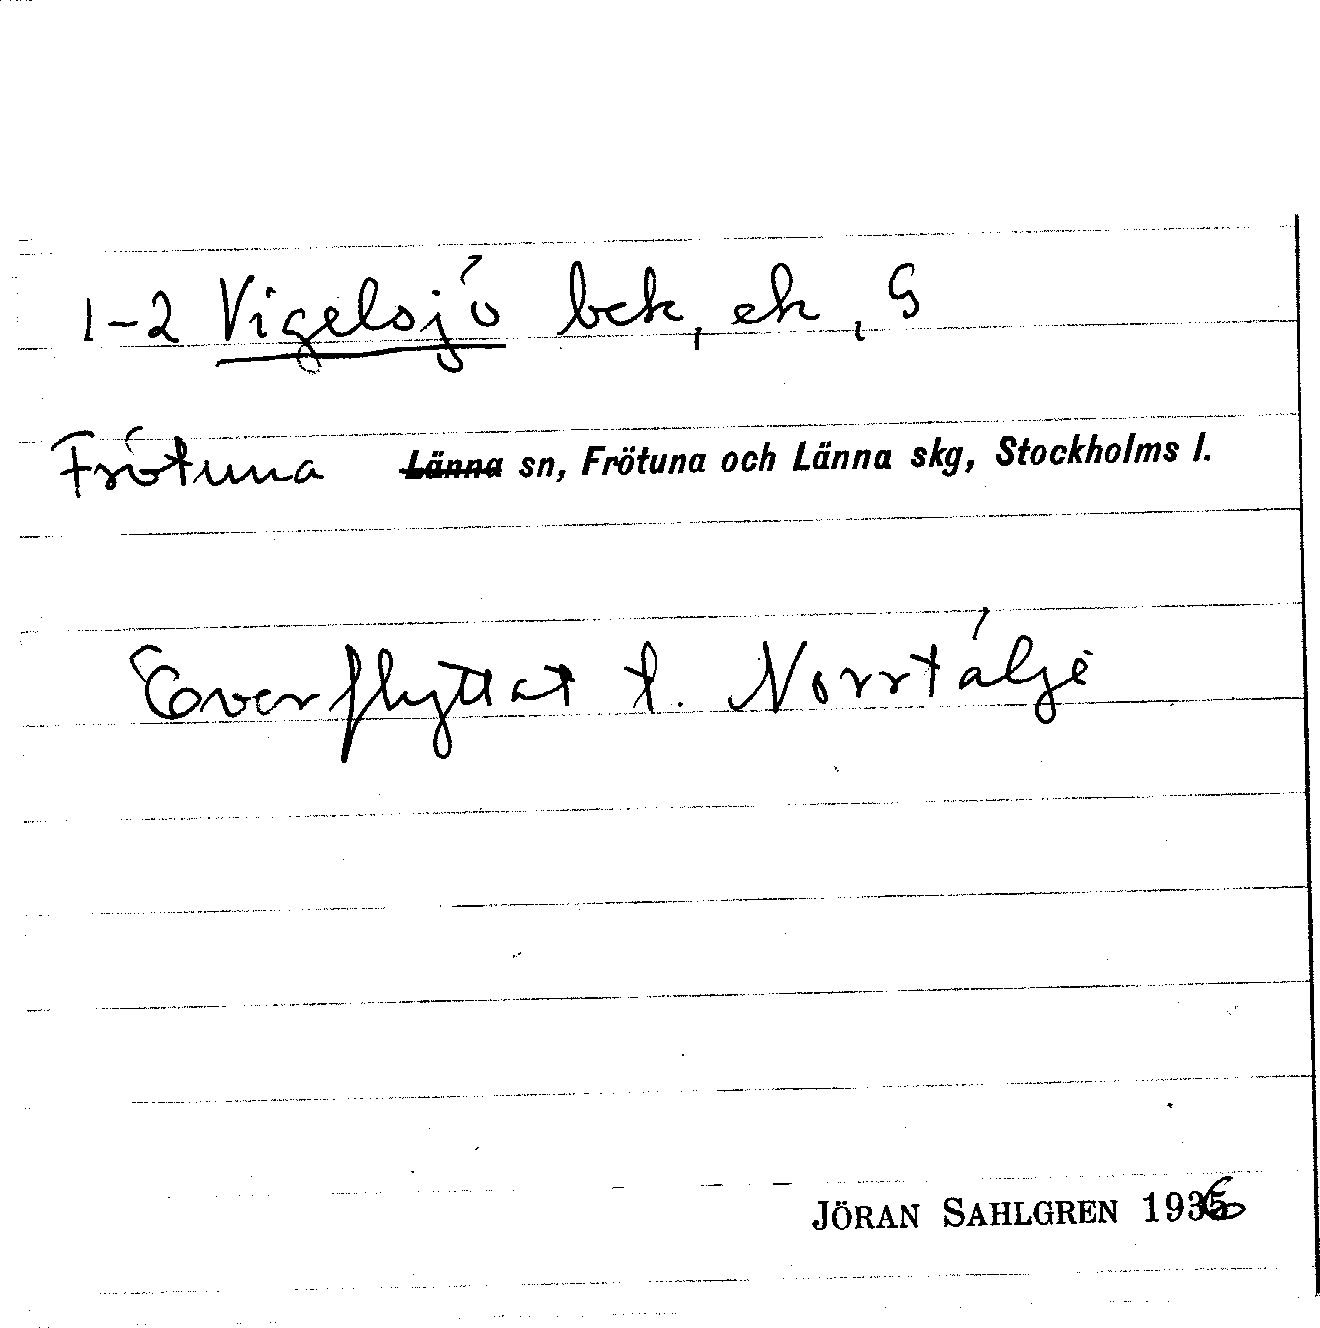 1-2 Vigelsjö bck, ek, G
Frötuna Länna sn, Frötuna och Länna skg, Stockholms l.
Överflyttat t. Norrtälje
JÖRAN SAHLGREN 1936